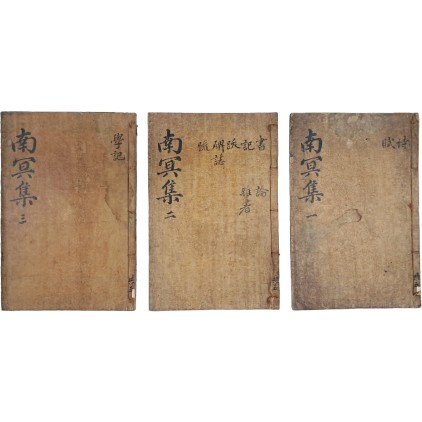 南冥集 三
學記
南冥集 二
書
記
跋
碑誌
疏
論
雜著
南冥集 一
詩
賦